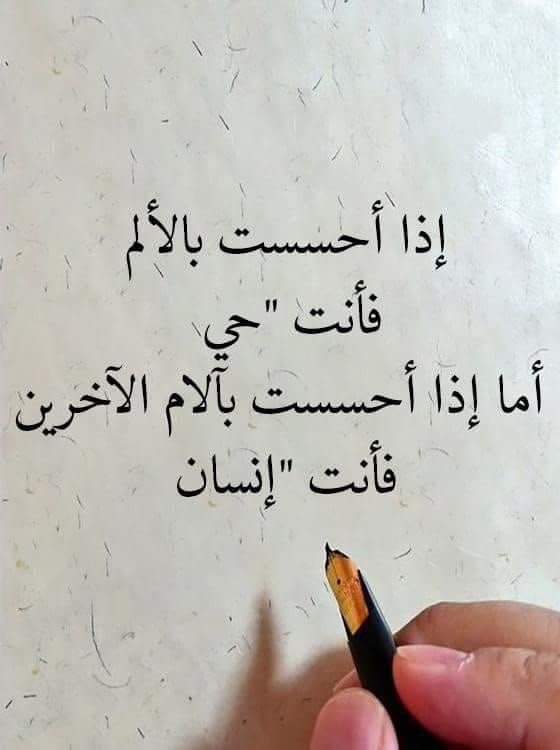 إذا أحسست بالألم
فأنت "حي
أما إذا أحسست بآلام الآخرين
فأنت "إنسان